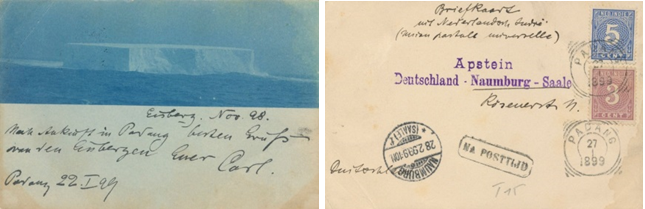 Eisberg. Nov. 98.
Nach Ankunft in Padang besten Gruß
von den Eisbergen Euer
Carl.
Padang 22. I 99
Briefkaart
uit Nederlandsch Indië
(Union postale universelle)
Apstein
Deutschland - Naumburg - Saale
NED. INDIE
5
CENT
3
CENT
PADANG
27
1
1899
PADANG
27
1
1899
NAUMBURG
(SAALE)
28.2.99.9-10V
NA POSTTIJD
T 15